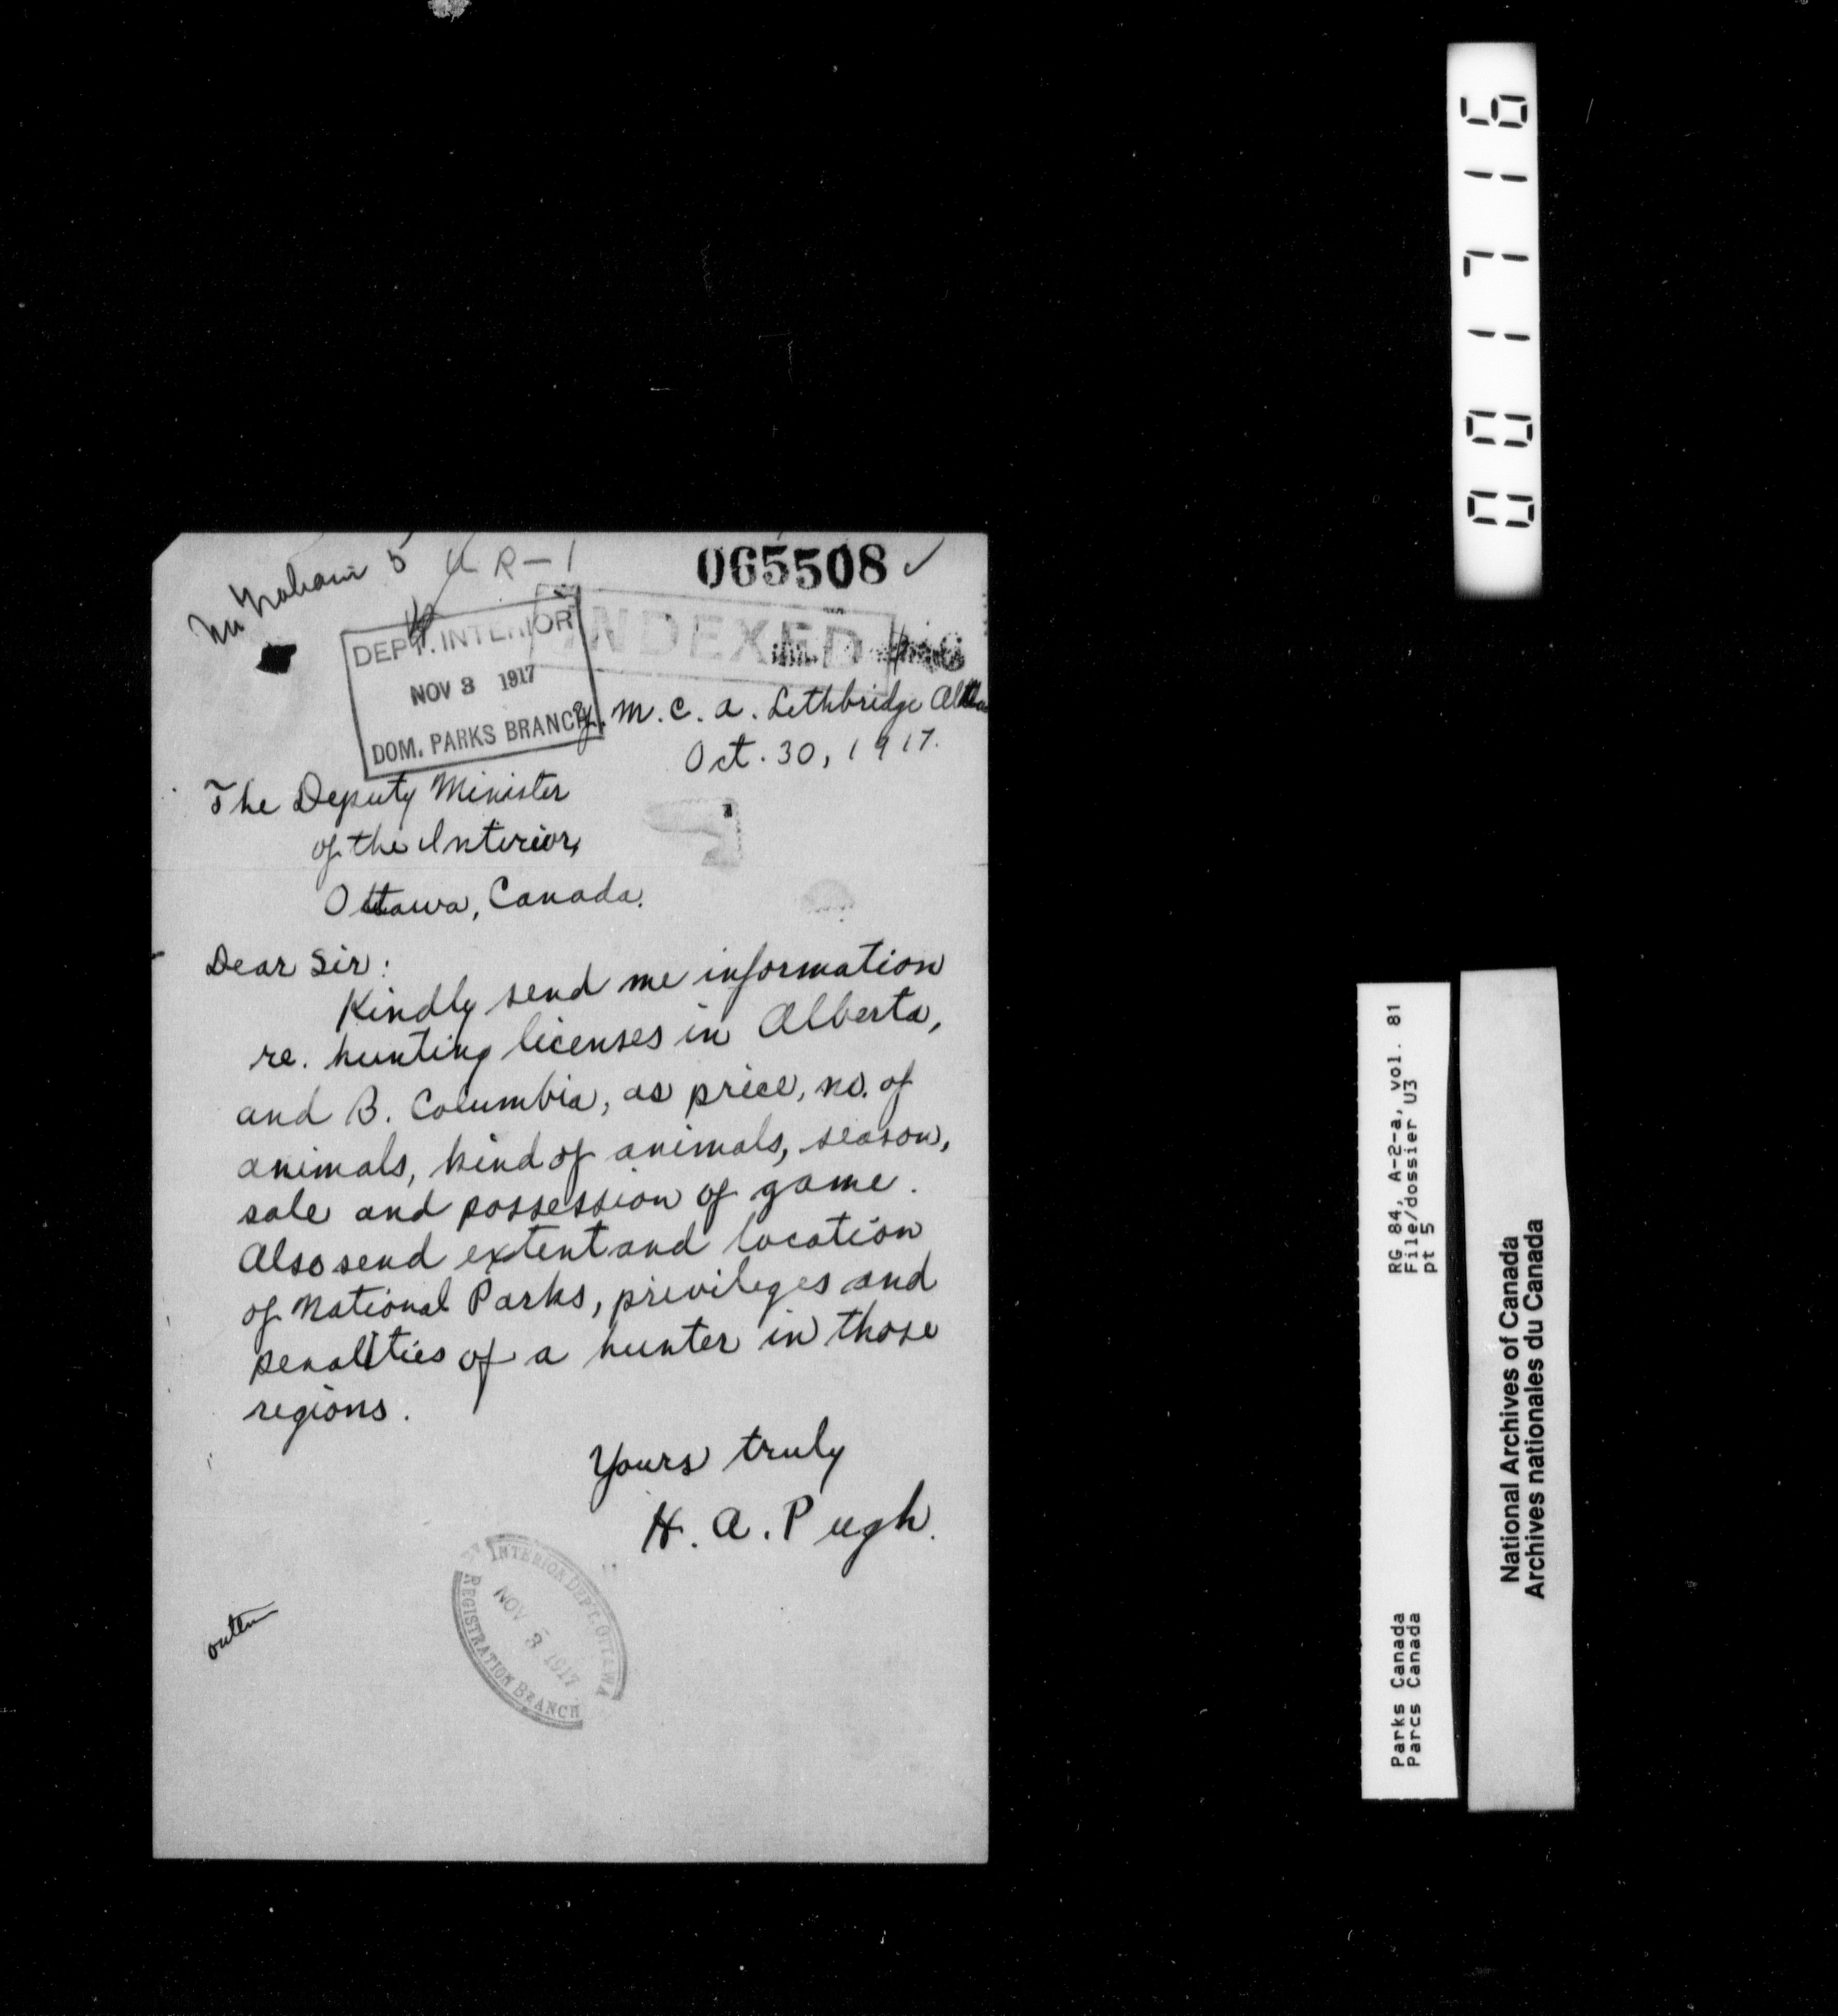 065508
R-1
INDEXED
DEPT. INTERIOR
NOV 3 1917
DOM. PARKS BRANCH
Y. M. C. A. Lethbridge Alta
Oct. 30, 1917.
The Deputy Minister
of the Interior,
Ottawa, Canada.
Dear Sir:
Kindly send me information
re. hunting licenses in Alberta,
and B. Columbia, as price, no. of
animals, kind of animals, season,
sale and possession of game.
Also send extent and location
of National Parks, privileges and
penalities of a hunter in those
regions.
Yours truly
H. A. Pugh.
INTERIOR DEPT. OTTAWA
NOV 3 1917
REGISTRATION BRANCH
001716
RG 84, A-2-a, vol. 81
File/dossier U3
pt 5
Parks Canada
Parcs Canada
National Archives of Canada
Archives nationales du Canada